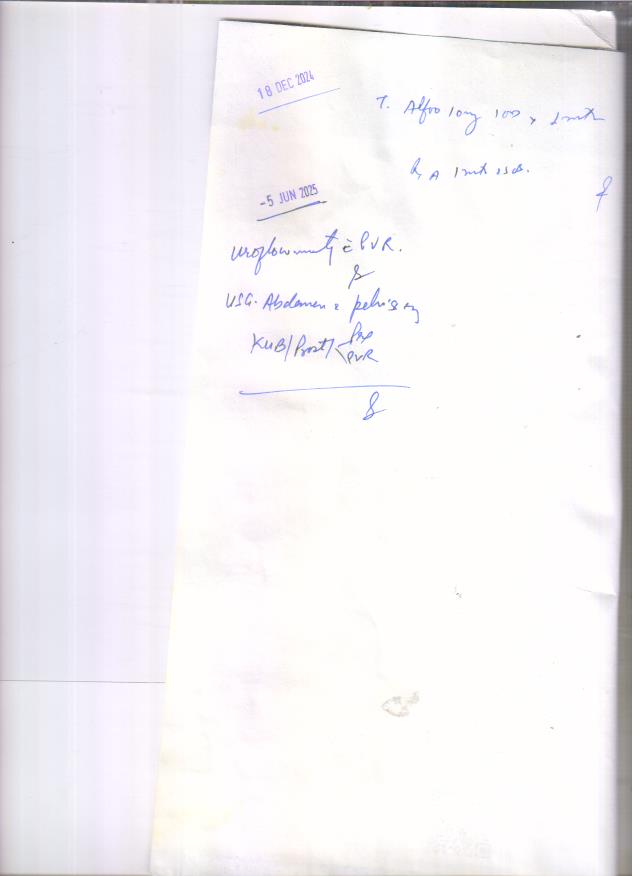 18 DEC 2024
T. Alfoo 10mg 1OD x 1 mth
R/A 1 mth
-5 JUN 2025
Uroflowmetry c̄ PVR.
&
USG. Abdomen & pelvis
KUB/Prost/< Pre
PVR